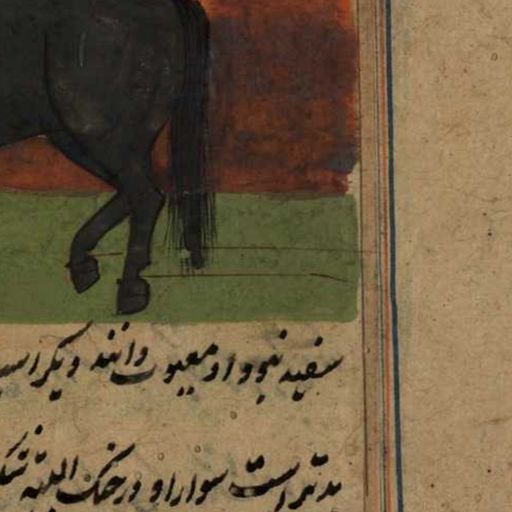 سفید نبود او معیوب دانند دیگر اسپ
بدتر است سوار او در جنگ البته